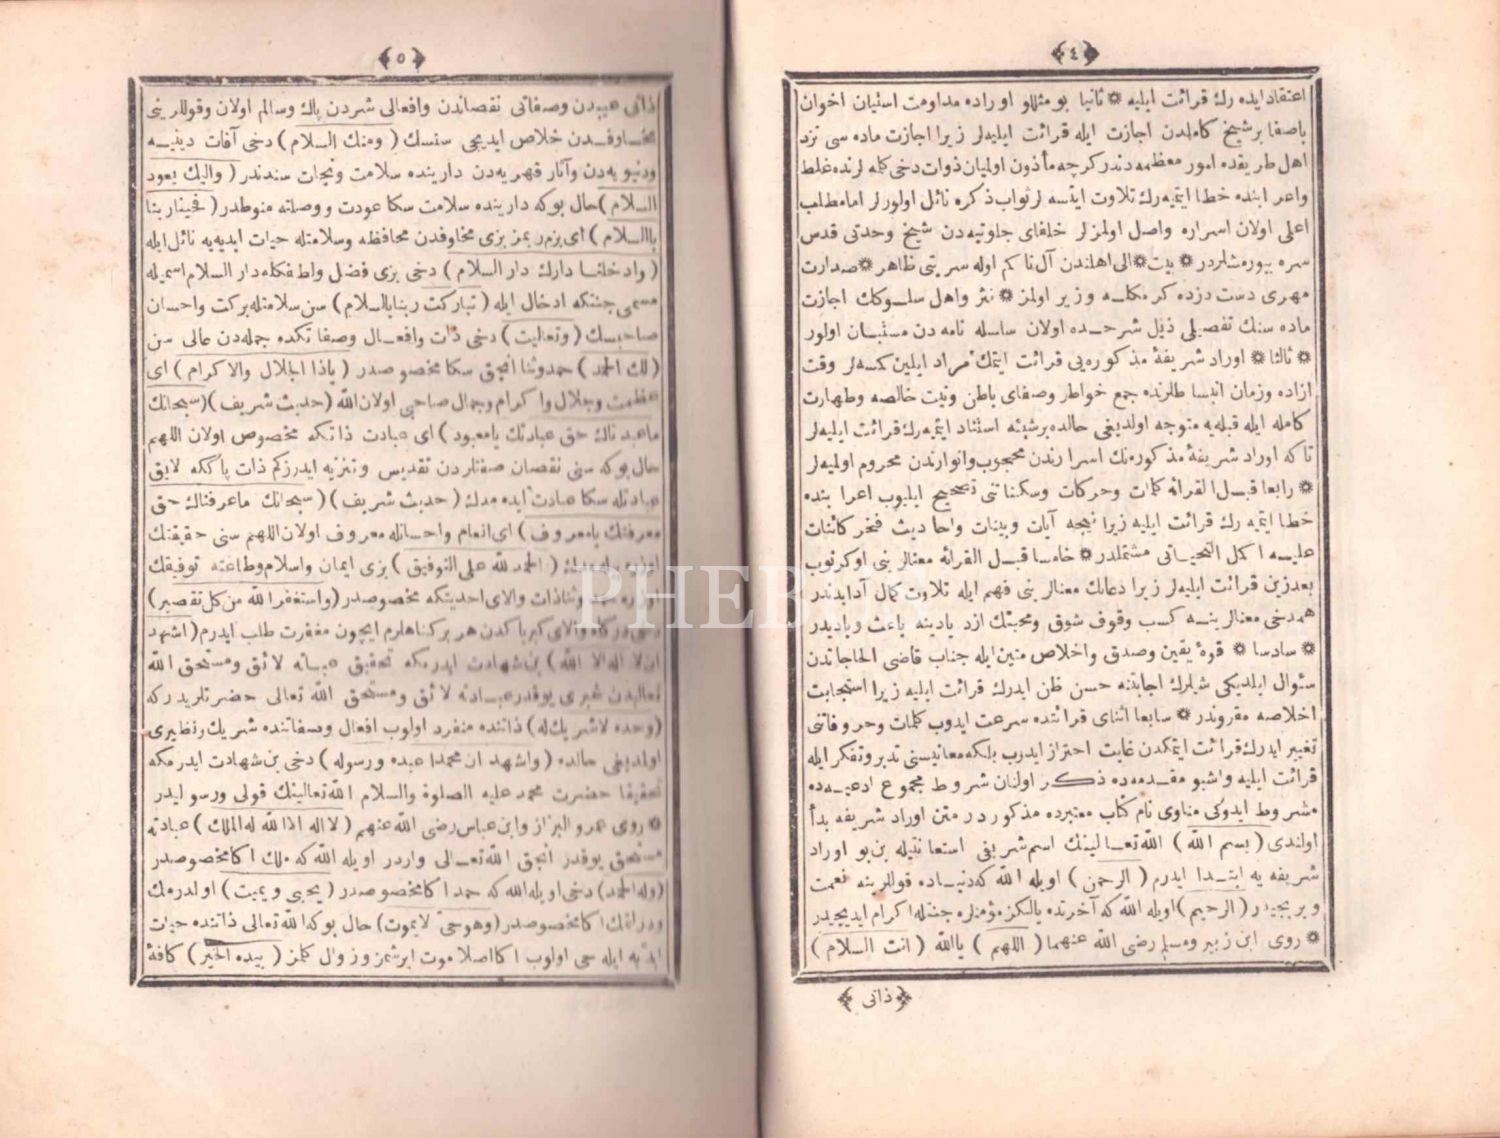 ٤
اعتقاد ایده رك قرائت ایلیه ❊ ثانیا بو مثللو اوراده مداومت استیان اخوان
باصفا بر شیخ كاملدن اجازت ایله قرائت ایلیه لر زیرا اجازت ماده سی نزد
اهل طریقده امور معظمه دندر كرچه مأذون اولمیان ذوات دخی كلمه لرنده غلط
واعرابنده خطا ایتمیه رك تلاوت ایتسه لر ثواب ذكره نائل اولورلر اما مطلب
اعلی اولان اسراره واصل اولمزلر خلفای جلوتیه دن شیخ وحدتی قدس
سره بیورمشلردر ❊ بیت ❊ الی اهلندن آل تا كم اوله سریتی ظاهر ❊ صدارت
مهری دست دزده كرمكله وزیر اولمز ❊ نثر واهل سلوكك اجازت
ماده سنك تفصیلی ذیل شرحده اولان سلسله نامه دن مستبان اولور
❊ ثالثا ❊ اوراد شریفۀ مذكوره یی قرائت ایتمك مراد ایلین كمسه لر وقت
ازاده وزمان انبساطلرنده جمع خواطر وصفای باطن ونیت خالصه وطهارت
كامله ایله قبله یه متوجه اولدیغی حالده برشیئه استناد ایتمیه رك قرائت ایلیه لر
تا كه اوراد شریفۀ مذكوره نك اسرارندن محجوب وانوارندن محروم اولمیه لر
❊ رابعا قبل القرائه كلمات وحركات وسكناتنی تصحیح ایلیوب اعرابنده
خطا ایتمیه رك قرائت ایلیه زیرا نیجه آیات وبینات واحادیث فخر كائنات
علیه اكمل التحیاتی مشتملدر ❊ خامسا قبل القرائه معنالرینی اوكرنوب
بعد زین قرائت ایلیه لر زیرا دعانك معنالرینی فهم ایله تلاوت كمال آدابدندر
همدخی معنالرینه كسب وقوف شوق ومحبتك ازدیادینه باعث وبادیدر
❊ سادسا ❊ قوۀ یقین وصدق واخلاص متین ایله جناب قاضی الحاجاتدن
سئوال ایلدیكی شیلرك اجابتنه حسن ظن ایدرك قرائت ایلیه زیرا استجابت
اخلاصه مقروندر ❊ سابعا اثنای قرائتده سرعت ایدوب كلمات وحروفاتنی
تغییر ایدرك قرائت ایتمكدن غایت احتراز ایدرب بلكه معانیسنی تدبر وتفكر ایله
قرائت ایلیه واشبو مقدمه ده ذكر اولنان شروط مجموع ادعیه ده
مشروط ایدوكی مناوی نام كتاب معتبرده مذكوردر متن اوراد شریفه بدأ
اولندی (بسم الله) الله تعالینك اسم شریفی استعانتیله بن بو اوراد
شریفه یه ابتدا ایدرم (الرحمن) اویله الله كه دنیاده قوللرینه نعمت
ویریجیدر (الرحیم) اویله الله كه آخرتده یالكز مؤمنلره جنتله اكرام ایدیجیدر
❊ روی ابن زبیر ومسلم رضی الله عنهما (اللهم) یا الله (انت السلام)
ذاتی
٥
ذاتی عیبدن وصفاتی نقصاندن وافعالی شردن پاك وسالم اولان وقوللرینی
مخاوفدن خلاص ایدیجی سنسك (ومنك السلام) دخی آفات دینیه
ودنیویه دن وآثار قهریه دن دارینده سلامت ونجات سندندر (والیك یعود
السلام) حال بوكه دارینده سلامت سكا عودت ووصلته منوطدر (فحینا ربنا
بالسلام) ای بزم ربمز بزی مخاوفدن محافظه وسلامتله حیات ابدیه یه نائل ایله
(وادخلنا دارك دار السلام) دخی بزی فضل ولطفكله دار السلام اسمیله
مسمی جنتكه ادخال ایله (تباركت ربنا یا السلام) سن سلامتله بركت واحسان
صاحبسك (وتعالیت) دخی ذات وافعال وصفاتكده جمله دن عالی سن
(لك الحمد) حمد وثنا انجق سكا مخصوصدر (یا ذا الجلال والاكرام) ای
عظمت وجلال واكرام وجمال صاحبی اولان الله (حدیث شریف) (سبحانك
ما عبدناك حق عبادتك یا معبود) ای عبادت ذاتكه مخصوص اولان اللهم
حال بوكه سنی نقصان صفتلردن تقدیس وتنزیه ایدرزكم ذات پاككه لایق
عبادتله سكا عبادت ایده مدك (حدیث شریف) (سبحانك ما عرفناك حق
معرفتك یا معروف) ای انعام واحسانله معروف اولان اللهم سنی حقیقتك
(الحمد لله علی التوفیق) بزی ایمان واسلام وطاعته توفیقك
ثنا ذات والای احدیتكه مخصوصدر (واستغفر الله من كل تقصیر)
دخی دركاه والای كبریاكدن هر بر كناهلرم ایچون مغفرت طلب ایدرم (اشهد
ان لا اله الا الله) بن شهادت ایدرمكه تحقیق عبادته لائق ومستحق الله
تعالیدن غیری یوقدر عبادته لائق ومستحق الله تعالی حضرتلریدركه
(وحده لا شریك له) ذاتنده منفرد اولوب افعال وصفاتنده شریك ونظیری
اولمدیغی حالده (واشهد ان محمدا عبده ورسوله) دخی بن شهادت ایدرمكه
تحقیقا حضرت محمد علیه الصلوة والسلام الله تعالینك قولی ورسولیدر
❊ روی عمرو البزاز وابن عباس رضی الله عنهم (لا اله الا الله له الملك) عبادته
مستحق یوقدر انجق الله تعالی واردر اویله الله كه ملك اكا مخصوصدر
(وله الحمد) دخی اویله الله كه حمد اكا مخصوصدر (یحیی ویمیت) اولدرمك
ودرلتمك اكا مخصوصدر (وهو حی لا یموت) حال بوكه الله تعالی ذاتنده حیات
ابدیه ایله حی اولوب اكا اصلا موت ایرشمز وزوال كلمز (بیده الخیر) كافۀ
PHEB